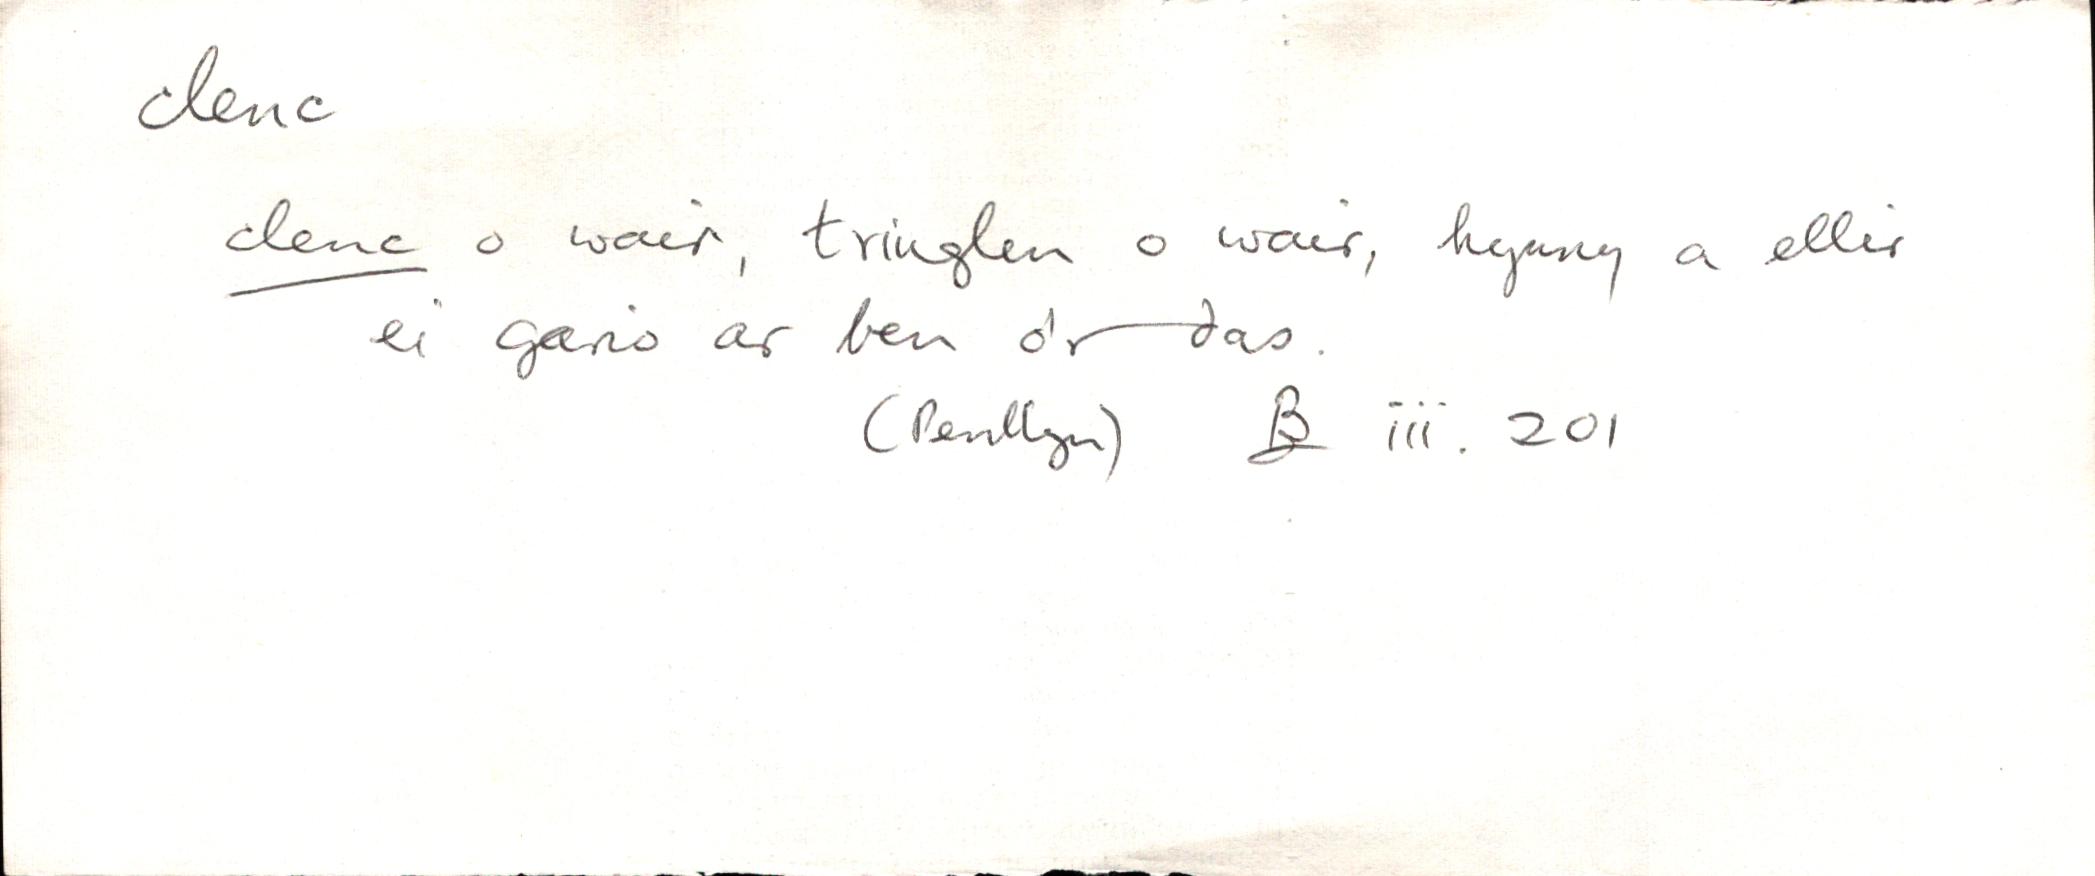 clenc
clenc o wair, tringlen o wair, hynny a ellir
ei gario ar ben o'r das.
(Penllyn) B iii. 201